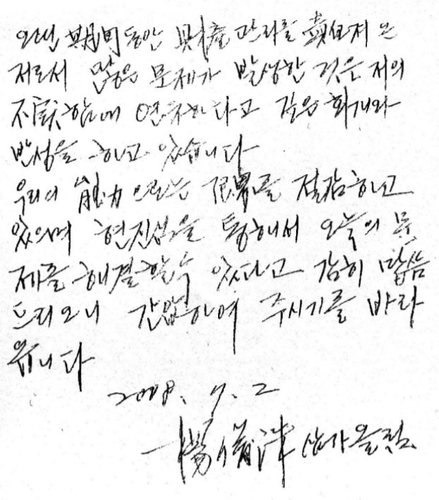 오랜 期間동안 財産관리를 해온
저로서 많은 문제가 발생한 것은 저의
不德함에 연유하다고 깊은 회개와
반성을 하고 있습니다
우리의 能力으로는 限界를 절감하고
있으며 현진님을 통해서 오늘의 문
제를 해결할 수 있다고 감히 말씀
드리오니 간압하여 주시기를 바라
옵니다
2008. 7. 2
楊 삼가올림.